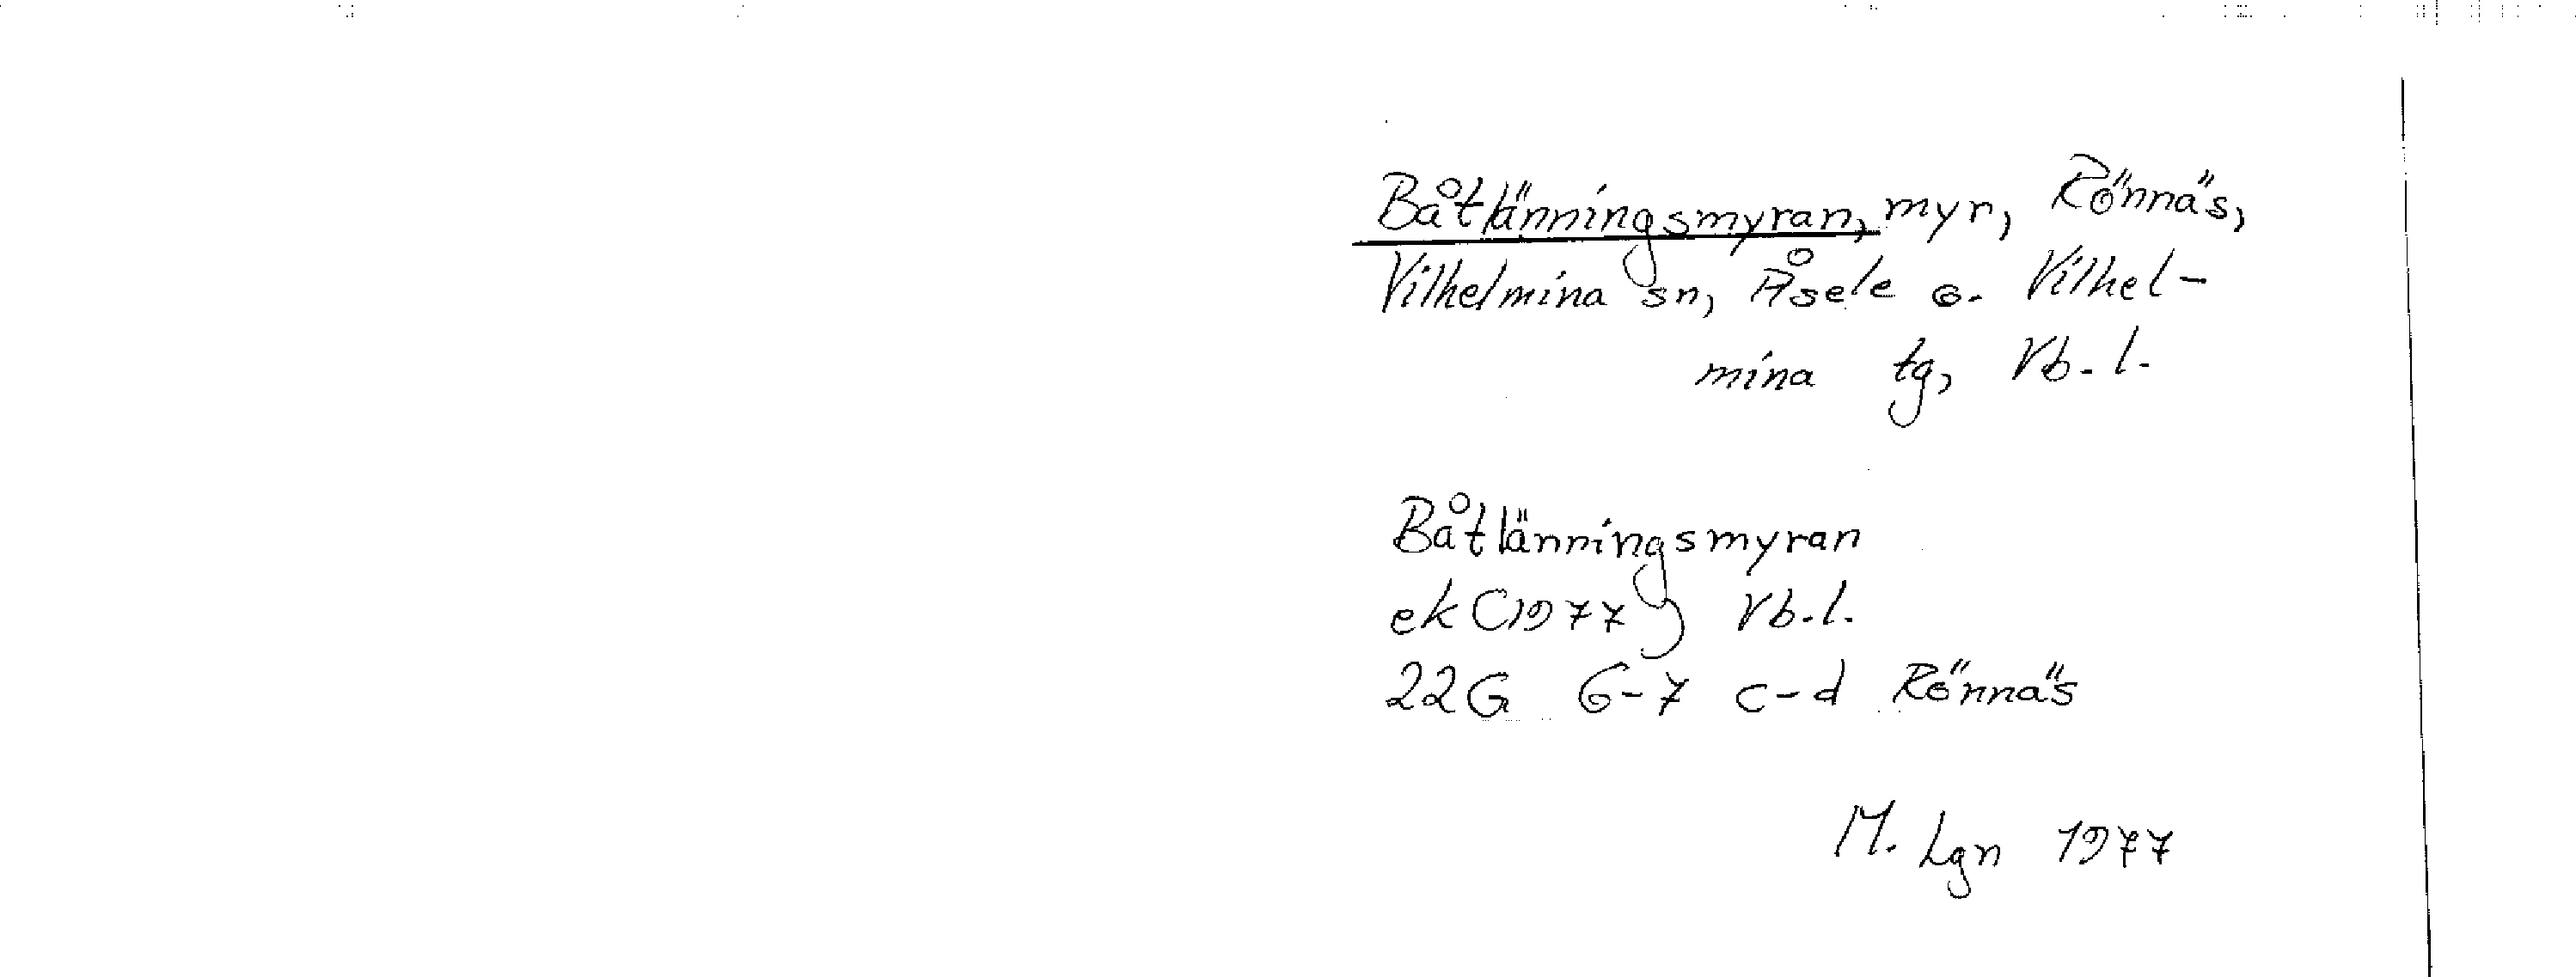 Båtlänningsmyran, myr, Rönnäs,
Vilhelmina sn, Åsele o. Vilhel-
mina tg, Vb.l.
Båtlänningsmyran
ek (1977) Vb.l.
22G 6-7 c-d Rönnäs
M. Lgn 1977